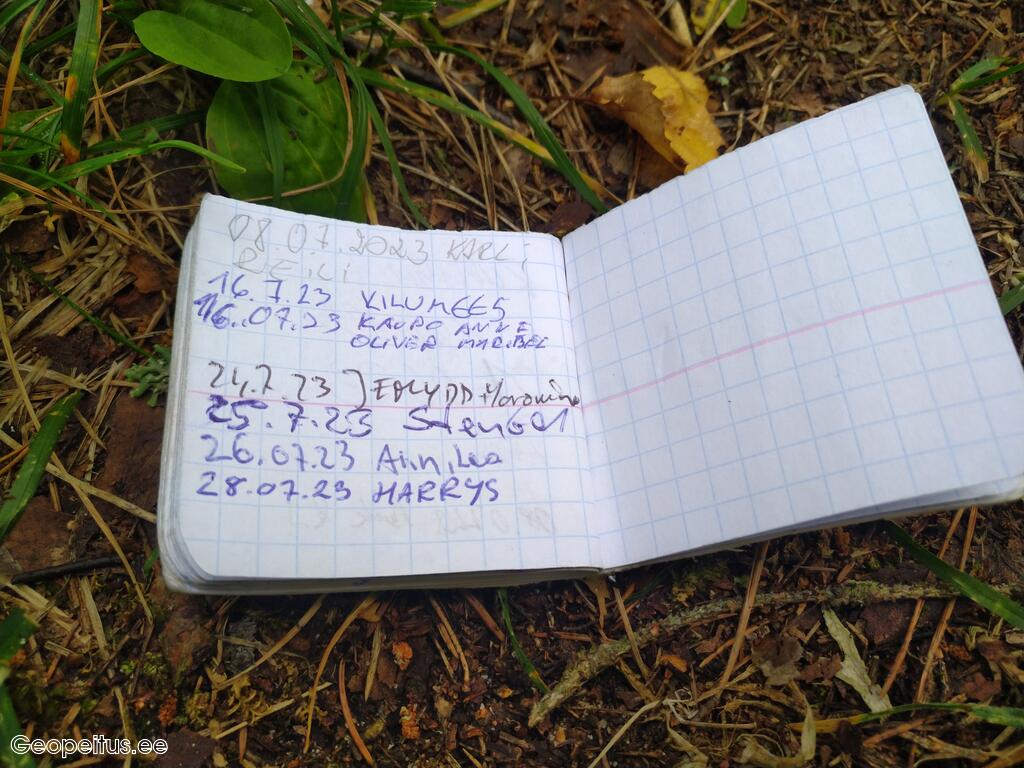 08.07.2023 KARLI
16.7.23 KILUMEES
16.07.23 KAUPO ANNE
OLIVER MARIBEL
24.7.23
25.7.23 Stengel
26.07.23
28.07.23 HARRYS
Geopeitus.ee